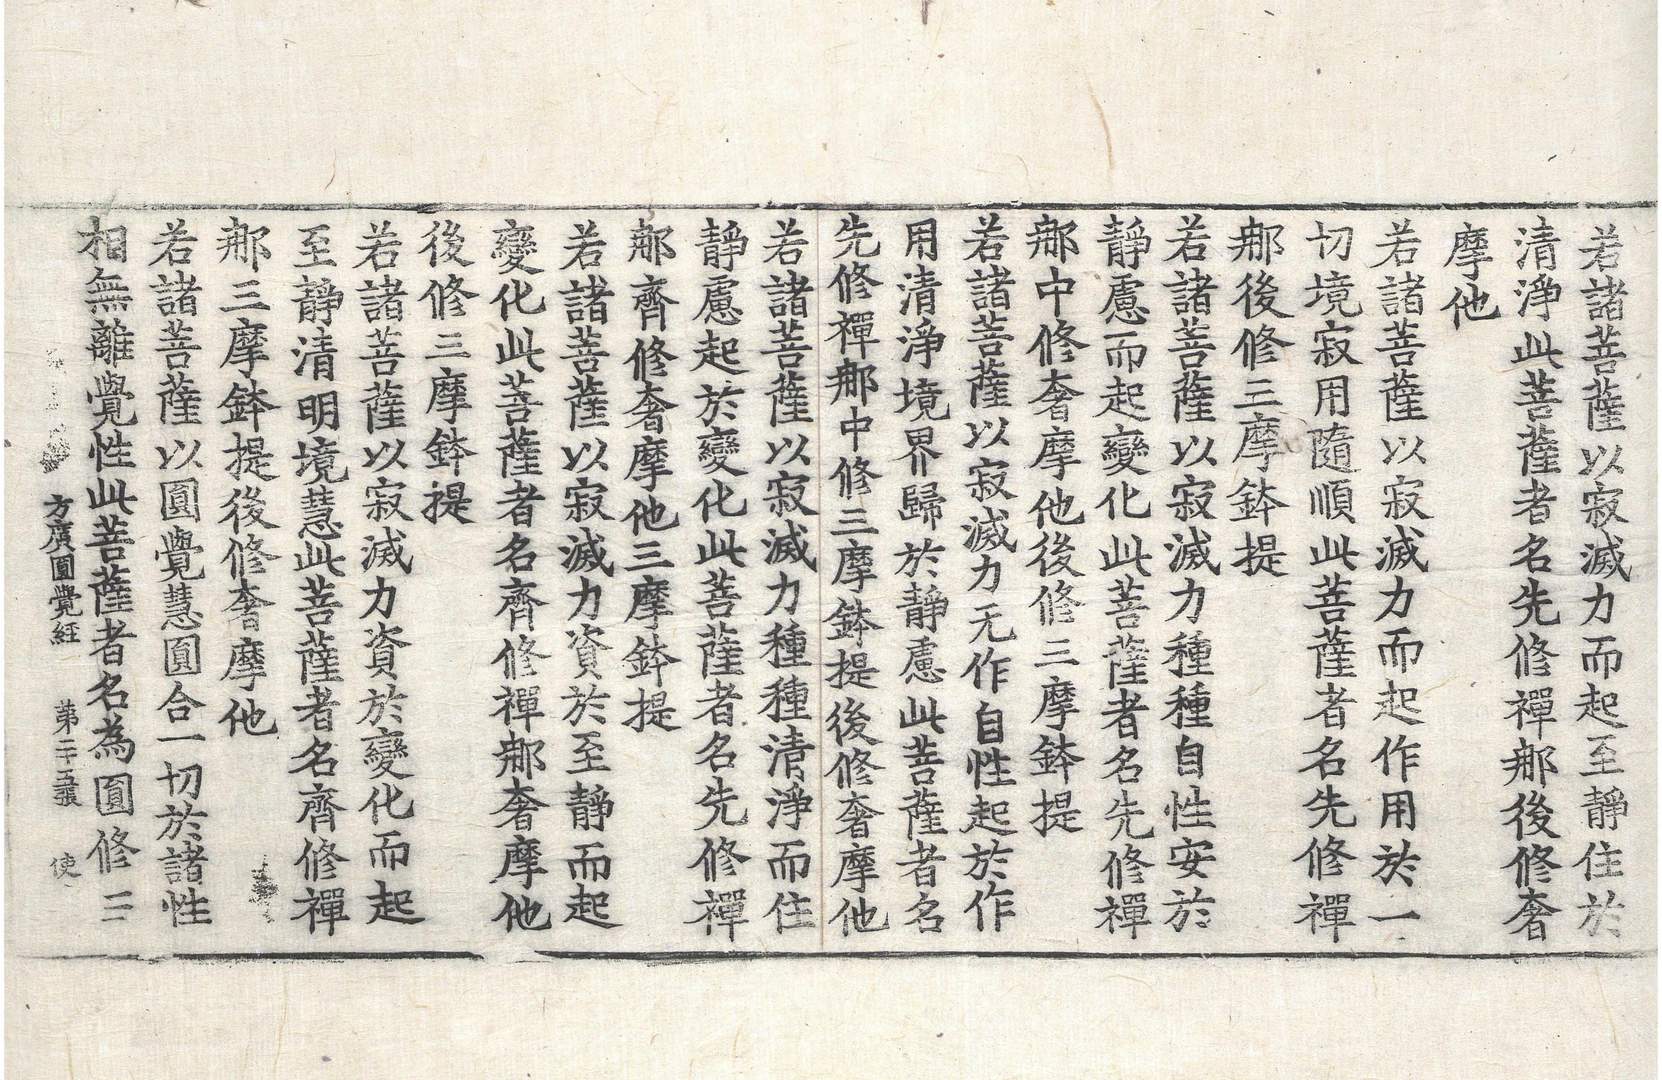 若諸菩薩以寂滅力而起至靜住於
清淨此菩薩者名先修禪那後修奢
摩他
若諸菩薩以寂滅力而起作用於一
切境寂用隨順此菩薩者名先修禪
那後修三摩鉢提
若諸菩薩以寂滅力種種自性安於
靜慮而起變化此菩薩者名先修禪
那中修奢摩他後修三摩鉢提
若諸菩薩以寂滅力无作自性起於作
用清淨境界歸於靜慮此菩薩者名
先修禪那中修三摩鉢提後修奢摩他
若諸菩薩以寂滅力種種清淨而住
靜慮起於變化此菩薩者名先修禪
那齊修奢摩他三摩鉢提
若諸菩薩以寂滅力資於至靜而起
變化此菩薩者名齊修禪那奢摩他
後修三摩鉢提
若諸菩薩以寂滅力資於變化而起
至靜清明境慧此菩薩者名齊修禪
那三摩鉢提後修奢摩他
若諸菩薩以圓覺慧圓合一切於諸性
相無離覺性此菩薩者名為圓修三
方廣圓覺経 第二十五張 使